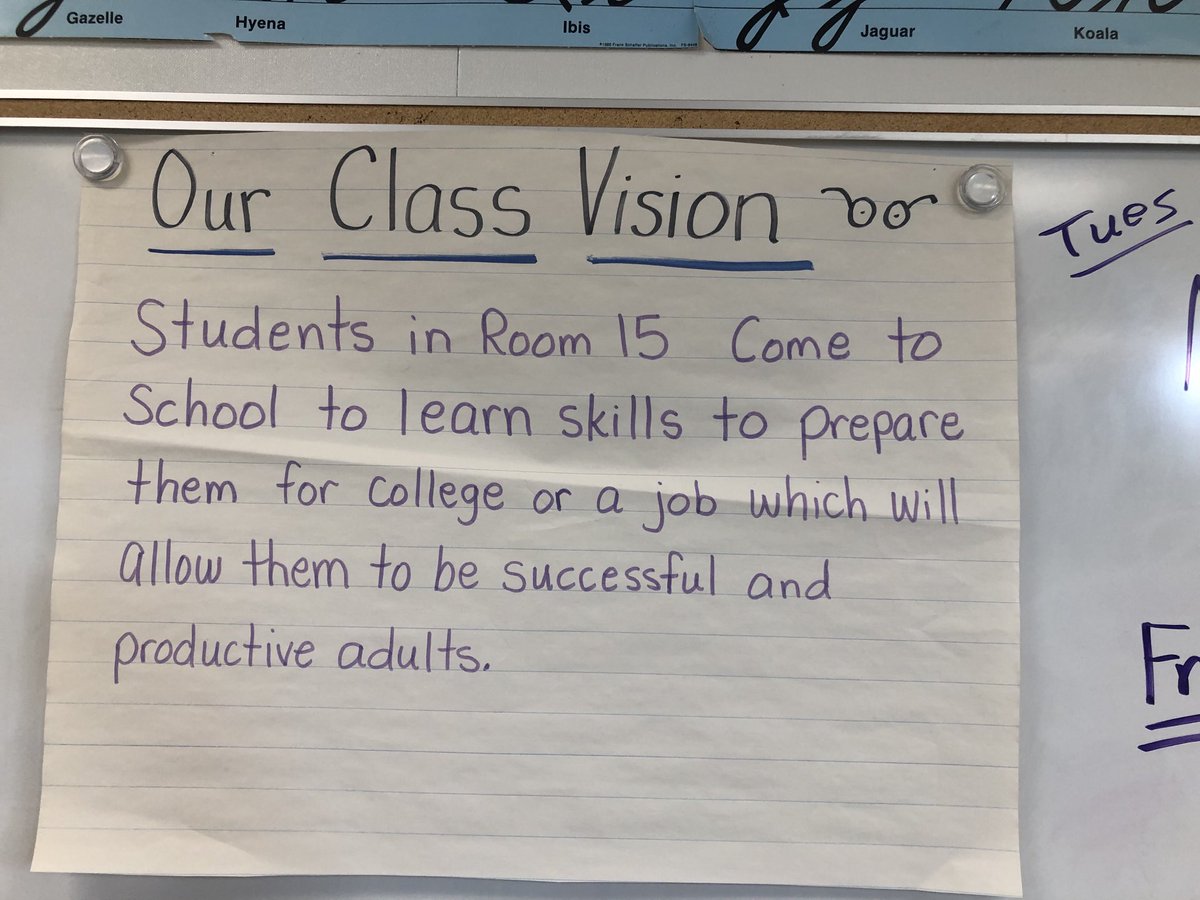 Gazelle
Hyena
Ibis
Jaguar
Koala
Our Class Vision
Students in Room 15 Come to
School to learn skills to prepare
them for college or a job which will
allow them to be successful and
productive adults.
Tues
Fr